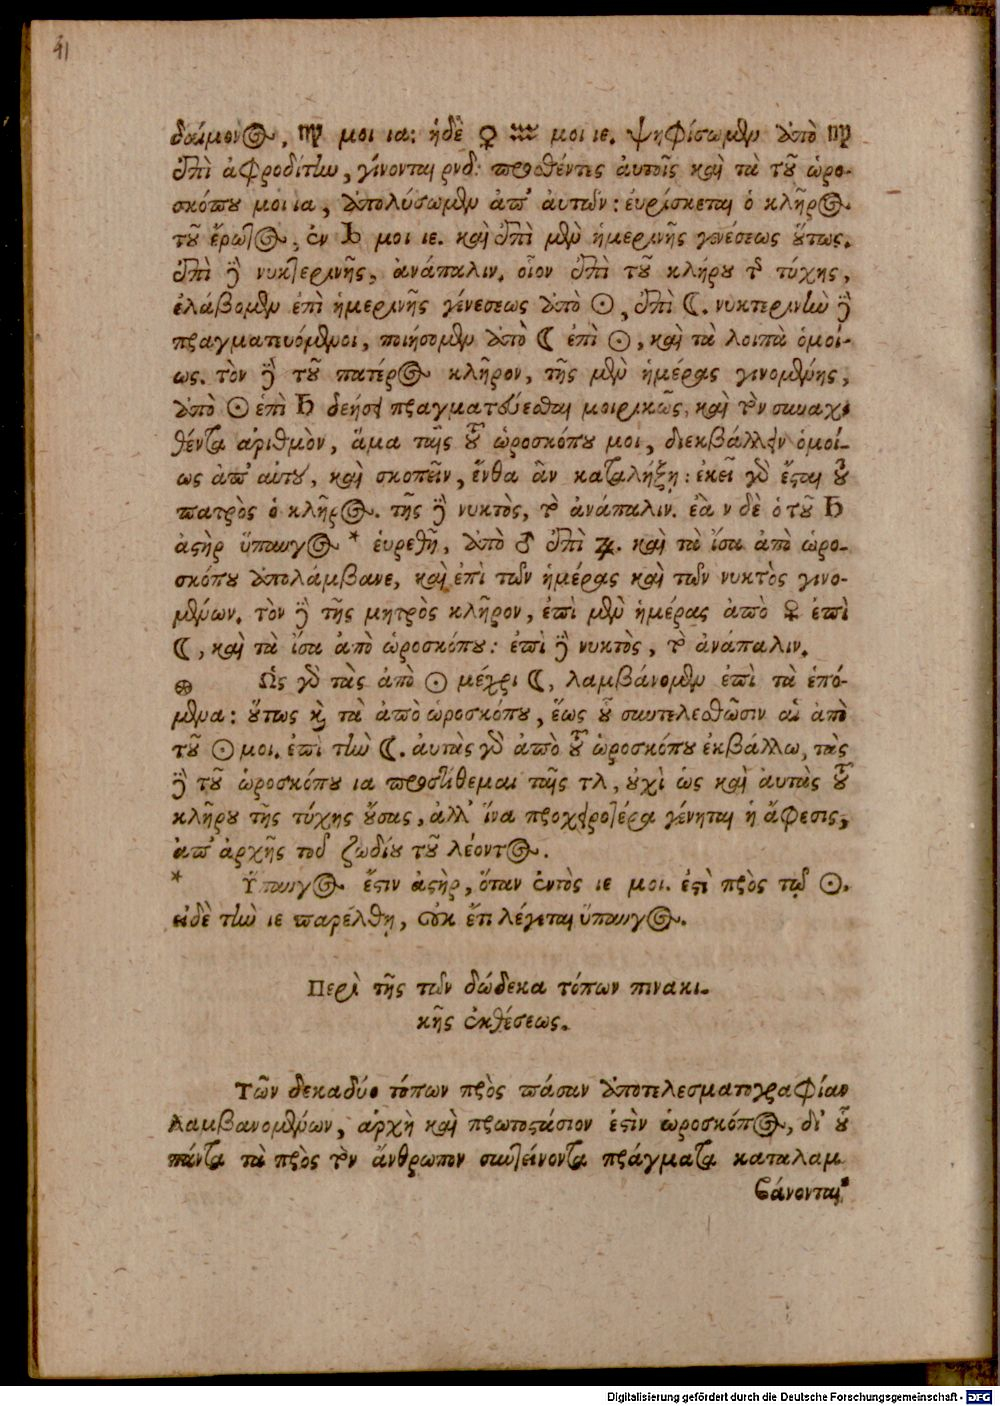 41
δαίμονος, ♍ μοι ια: ἡδὲ ♀ ♒ μοι ιε. ψηφίσωμεν ἀπὸ ♍
ἐπὶ ἀφροδίτην, γίνονται ρνδ: προσθέντες ἀυτοῖς καὶ τὰ τοῦ ὡρο-
σκόπου μοι ια, ἀπολύσωμεν ἀπ' ἀυτῶν: ἑυρίσκεται ὁ κλῆρος
τοῦ ἔρωτος, ἐν ♄ μοι ιε. καὶ ἐπὶ μὲν ἡμερινῆς γενέσεως οὕτως.
ἐπὶ δὲ νυκτερινῆς, ἀνάπαλιν. οἷον ἐπὶ τοῦ κλήρου τῆς τύχης,
ἐλάβομεν ἐπὶ ἡμερινῆς γένεσεως ἀπὸ ☉, ἐπὶ ☾. νυκτερινὴν δὲ
πραγματευόμενοι, ποιήσομεν ἀπὸ ☾ ἐπὶ ☉, καὶ τὰ λοιπὰ ὁμοί-
ως. τὸν δὲ τοῦ πατέρος κλῆρον, τῆς μὲν ἡμέρας γινομένης,
ἀπὸ ☉ ἐπὶ ♄ δεήσει πραγματεύεσθαι μοιρικῶς, καὶ τὸν συναχ
θέντα ἀριθμὸν, ἅμα ταῖς τοῦ ὡροσκόπου μοι, διεκβάλλειν ὁμοί-
ως ἀπ' αὐτοῦ, καὶ σκοπεῖν, ἔνθα ἂν καταλήξῃ: ἐκεῖ γὰρ ἔσται τοῦ
πατρὸς ὁ κλῆρος. τῆς δὲ νυκτὸς, τὸ ἀνάπαλιν. ἐὰ ν δὲ ὁ τοῦ ♄
ἀστὴρ ὕπαυγος * ἑυρεθῆ, ἀπὸ ♂ ἐπὶ ♃. καὶ τὰ ἴσα ἀπὸ ὡρο-
σκόπου ἀπολάμβανε, καὶ ἐπὶ τῶν ἡμέρας καὶ τῶν νυκτὸς γινο-
μένων. τὸν δὲ τῆς μητρὸς κλῆρον, ἐπὶ μὲν ἡμέρας ἀπὸ ♀ ἐπὶ
☾, καὶ τὰ ἴσα ἀπὸ ὡροσκόπου: ἐπὶ δὲ νυκτὸς, τὸ ἀνάπαλιν.
⊛ Ὡς γὰρ τὰς ἀπὸ ☉ μέχρι ☾, λαμβάνομεν ἐπὶ τὰ ἑπό-
μενα: οὕτως καὶ τὰ ἀπὸ ὡροσκόπου, ἕως οὗ συντελεσθῶσιν αἱ ἀπὸ
τοῦ ☉ μοι. ἐπὶ τὴν ☾. ἀυτὰς γὰρ ἀπὸ τοῦ ὡροσκόπου ἐκβάλλω, τὰς
δὲ τοῦ ὡροσκόπου ια προστίθεμαι ταῖς τλ, οὐχὶ ὡς καὶ ἀυτὰς τοῦ
κλήρου τῆς τύχης οὔσας, ἀλλ' ἵνα προχειροτέρα γένηται ἡ ἄφεσις,
ἀπ' ἀρχῆς τοῦ ζωδίου τοῦ λέοντος.
* Ὕπαυγος ἔστιν ἀστὴρ, ὅταν ἐντὸς ιε μοι. ἐστὶ πρὸς τῷ ☉.
εἰδὲ τὴν ιε παρέλθῃ, οὐκ ἔτι λέγεται ὕπαυγος.
Περὶ τῆς τῶν δώδεκα τόπων πινακι-
κῆς ἐκθέσεως.
Τῶν δεκαδύο τόπων πρὸς πᾶσαν ἀποτελεσματογραφίαν
λαμβανομένων, ἀρχὴ καὶ πρωτοστάσιον ἐστὶν ὡροσκόπος, δι' οὗ
πάντα τὰ πρὸς τὸν ἄνθρωπον συντείνοντα πράγματα καταλαμ
βάνονται
Digitalisierung gefördert durch die Deutsche Forschungsgemeinschaft - DFG